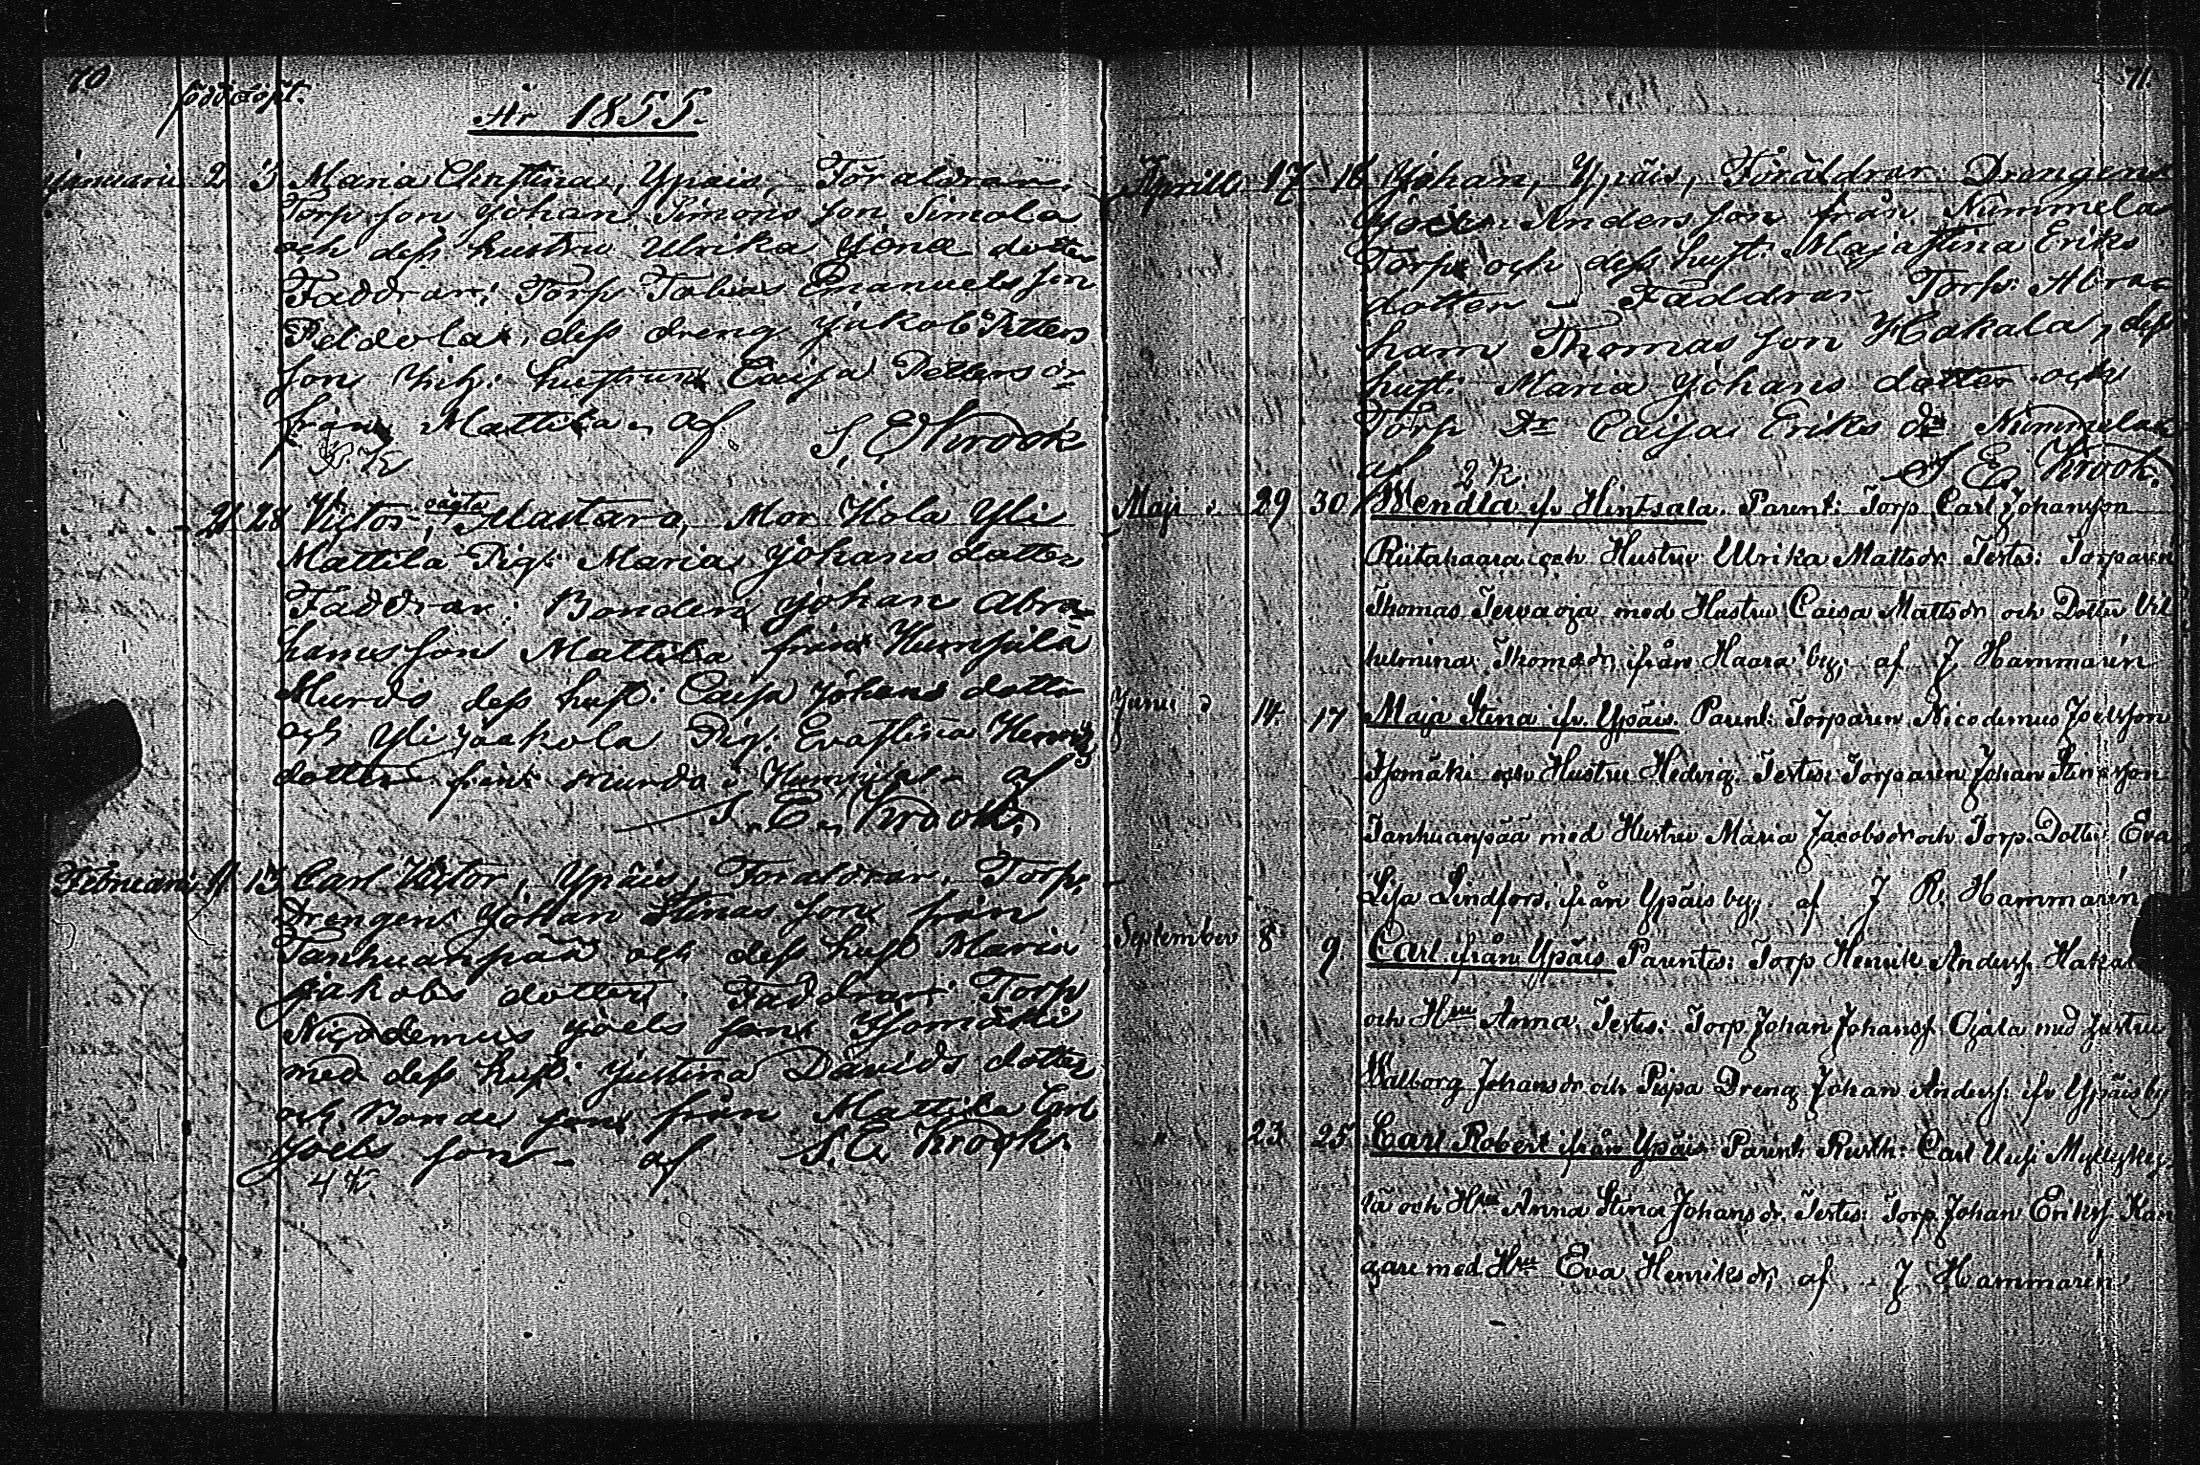 70
född döpt.
År 1855.
Januarii 2 3 Maria Christina, Ypäis, Föräldrar.
Torp son Johan Simons son Simola
och dess hustru Ulrika Jona dotter
Faddrar: Torp Tobias Emanuels son
Peldola, dess dreng Jakob Petters
son hustrun Caisa Petters dr
från Mattila, af S. E. Krook
21 28 Victor oägta Mastara, Mor Kola Yli
Mattila Pig. Maria Johans dotter
Faddrar: Bonden Johan Abra-
hams son Mattila från Humpila
Murdo dess hust: Caisa Johans dotter
och Yli Jaakola Pig. Evastina Henriks
dotter från Murdo i Humpila af
S. E. Krook.
Februarii 11 13 Carl Victor, Ypäis, Föräldrar. Torp.
Drengen Johan Stinas son från
Tanhuanpää och dess hust Maria
Jakobs dotter. Faddrar: Torp
Nicodemus Joels son Isomäki
med dess hust: Justina Davids dotter
och Bonde son från Mattila Carl
Joels son af S. E. Krook.
4 K.
71.
Aprill 17 18 Johan, Ypäis, Föräldrar Drengens
Anders son från Nummela
Torp och dess hust: Majastina Eriks
dotter Faddrar Torp: Abra-
ham Thomas son Hakala, dess
hust: Maria Johans dotter och
Torp Dr Caisa Eriks dr Nummela
af 2 K. S E. Krook.
Maji 29 30 Wendla ifr Hintsala. Parent: Torp Carl Johansson
Riitahaara och Hustru Ulrika Mattsdr Testes: Torparen
Thomas Terwaoja med Hustru Caisa Mattsdr och Dotter Vil
helmina Thomædr, ifrån Haara by, af J. Hammarén
Junii 14. 17 Maja Stina ifr. Ypäis. Parent: Torparen Nicodemus Joelsson
Isomäki och Hustru Hedvig. Testes: Torparen Johan Stinasson
Tanhuanpää med Hustru Maria Jacobsdr och Torp. Dotter Eva
Lisa Lindfors, ifrån Ypäis by, af J R. Hammarén
September 8 9 Carl ifrån Ypäis Parentes: Torp Henrik Anderss. Hakala
och Hru Anna. Testes: Torp. Johan Johanss. Ojala med hustru
Walborg Johansdr och Pispa Dreng Johan Anderss. ifr Ypäis by
" 23 25 Carl Robert ifrån Ypäis Parent: Rusth: Carl Uusi Myllyky
lä och Hru Anna Stina Johansdr. Testes: Torp. Johan Erikss. Kan
gare med Hru Eva Henriksdr, af J Hammarén